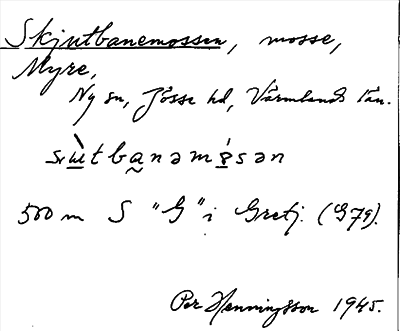 Skjutbanemossen, mosse,
Myre,
Ny sn, Jösse hd, Värmlands län.
500 m S "G" i Gretj. (G79).
Per Henningsson 1945.